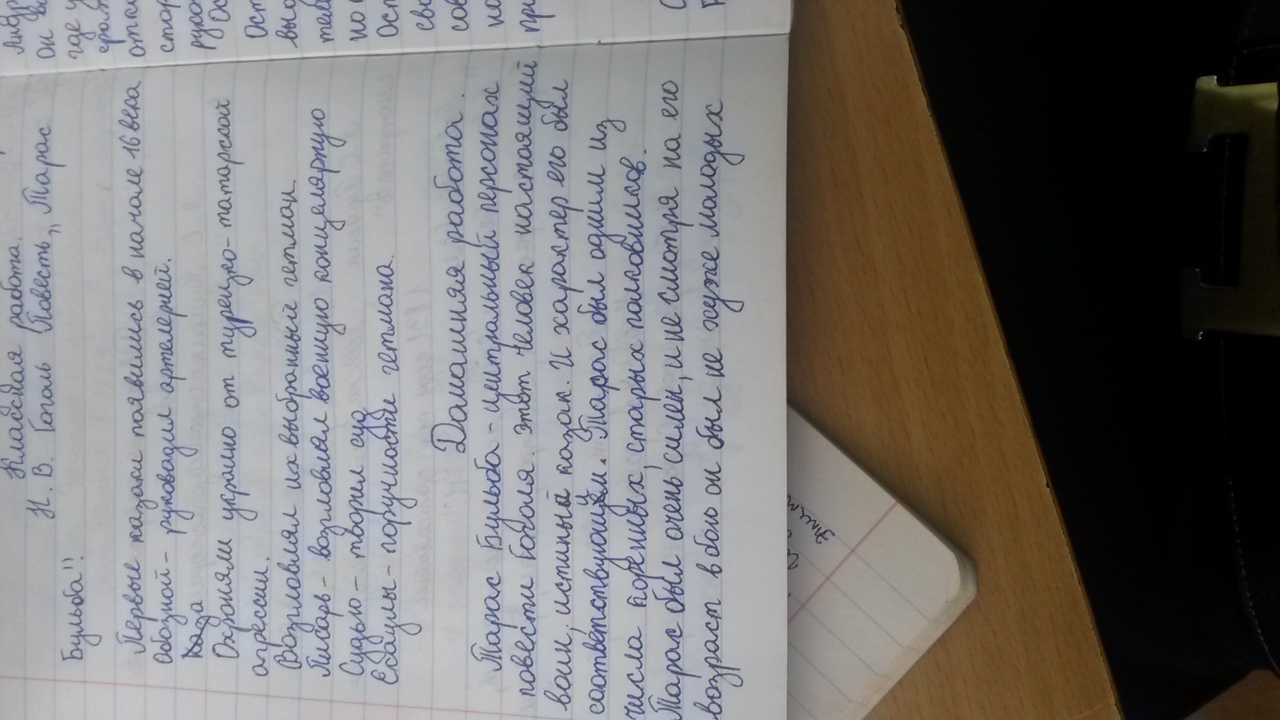 Классная работа.
Н. В. Гоголь (Повесть „Тарас
Бульба"!
Первые казаки появились в начале 16 века
Обозной - руководил артелерией.
Охроняли украино от турецко-татарской
агрессии.
Возгловлял их выбронный гетман
Писарь - возгловлял военную концелярную
Судьи - творил суд
Есаулы - поручиноти гетмана.
Домашняя работа.
Тарас Бульба - центральный персонаж
повести Гоголя. этот человек настоящий
воин, истиный казак. И характер его был
соответствующий. Тарас был одним из
числа коренных, старых полковников.
Тарас был очень силен, и не смотря на его
возраст в бою он был не хуже маладых